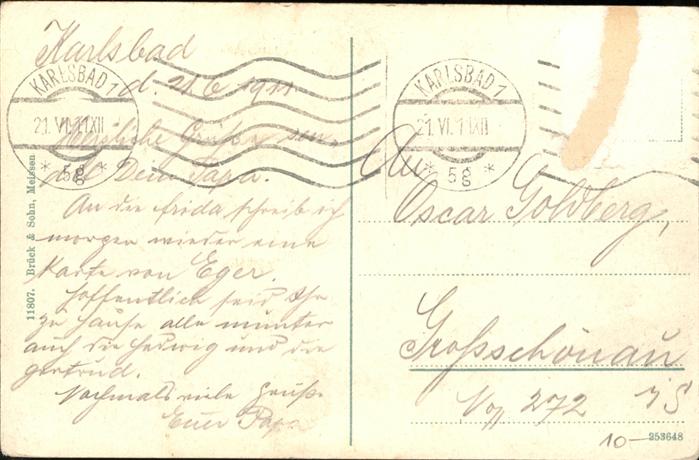 Karlsbad
d. 21.6.1911
KARLSBAD 1
21.VI.11 XII
* 5g *
KARLSBAD 1
21.VI.11 XII
* 5g *
Herzliche Grüße
Dein Papa.
An die Frida schreib ich
morgen wieder eine
Karte von Eger.
Hoffentlich seid Ihr
zu Hause alle munter
auch die Hedwig und die
Gertrud.
Nochmals viele Grüße
Euer Papa
11807. Brück & Sohn, Meissen
An
Oscar Goldberg,
Großschönau
272
253648
10-